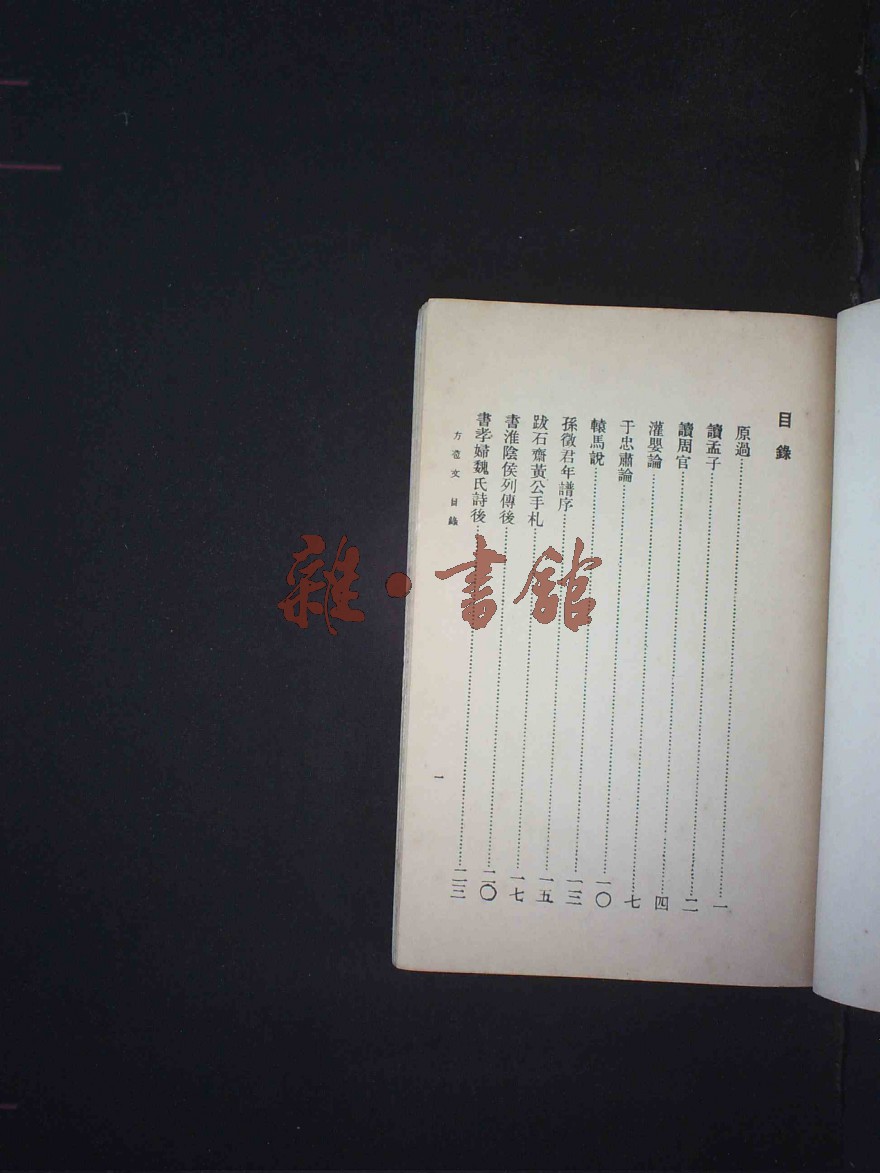 目錄
原過…………一
讀孟子…………二
讀周官…………四
灌嬰論…………七
于忠肅論…………一〇
轅馬說…………一三
孫徵君年譜序…………一五
跋石齋黃公手札…………一七
書淮陰侯列傳後…………二〇
書孝婦魏氏詩後…………二三
方苞文 目錄
一
雜·書館